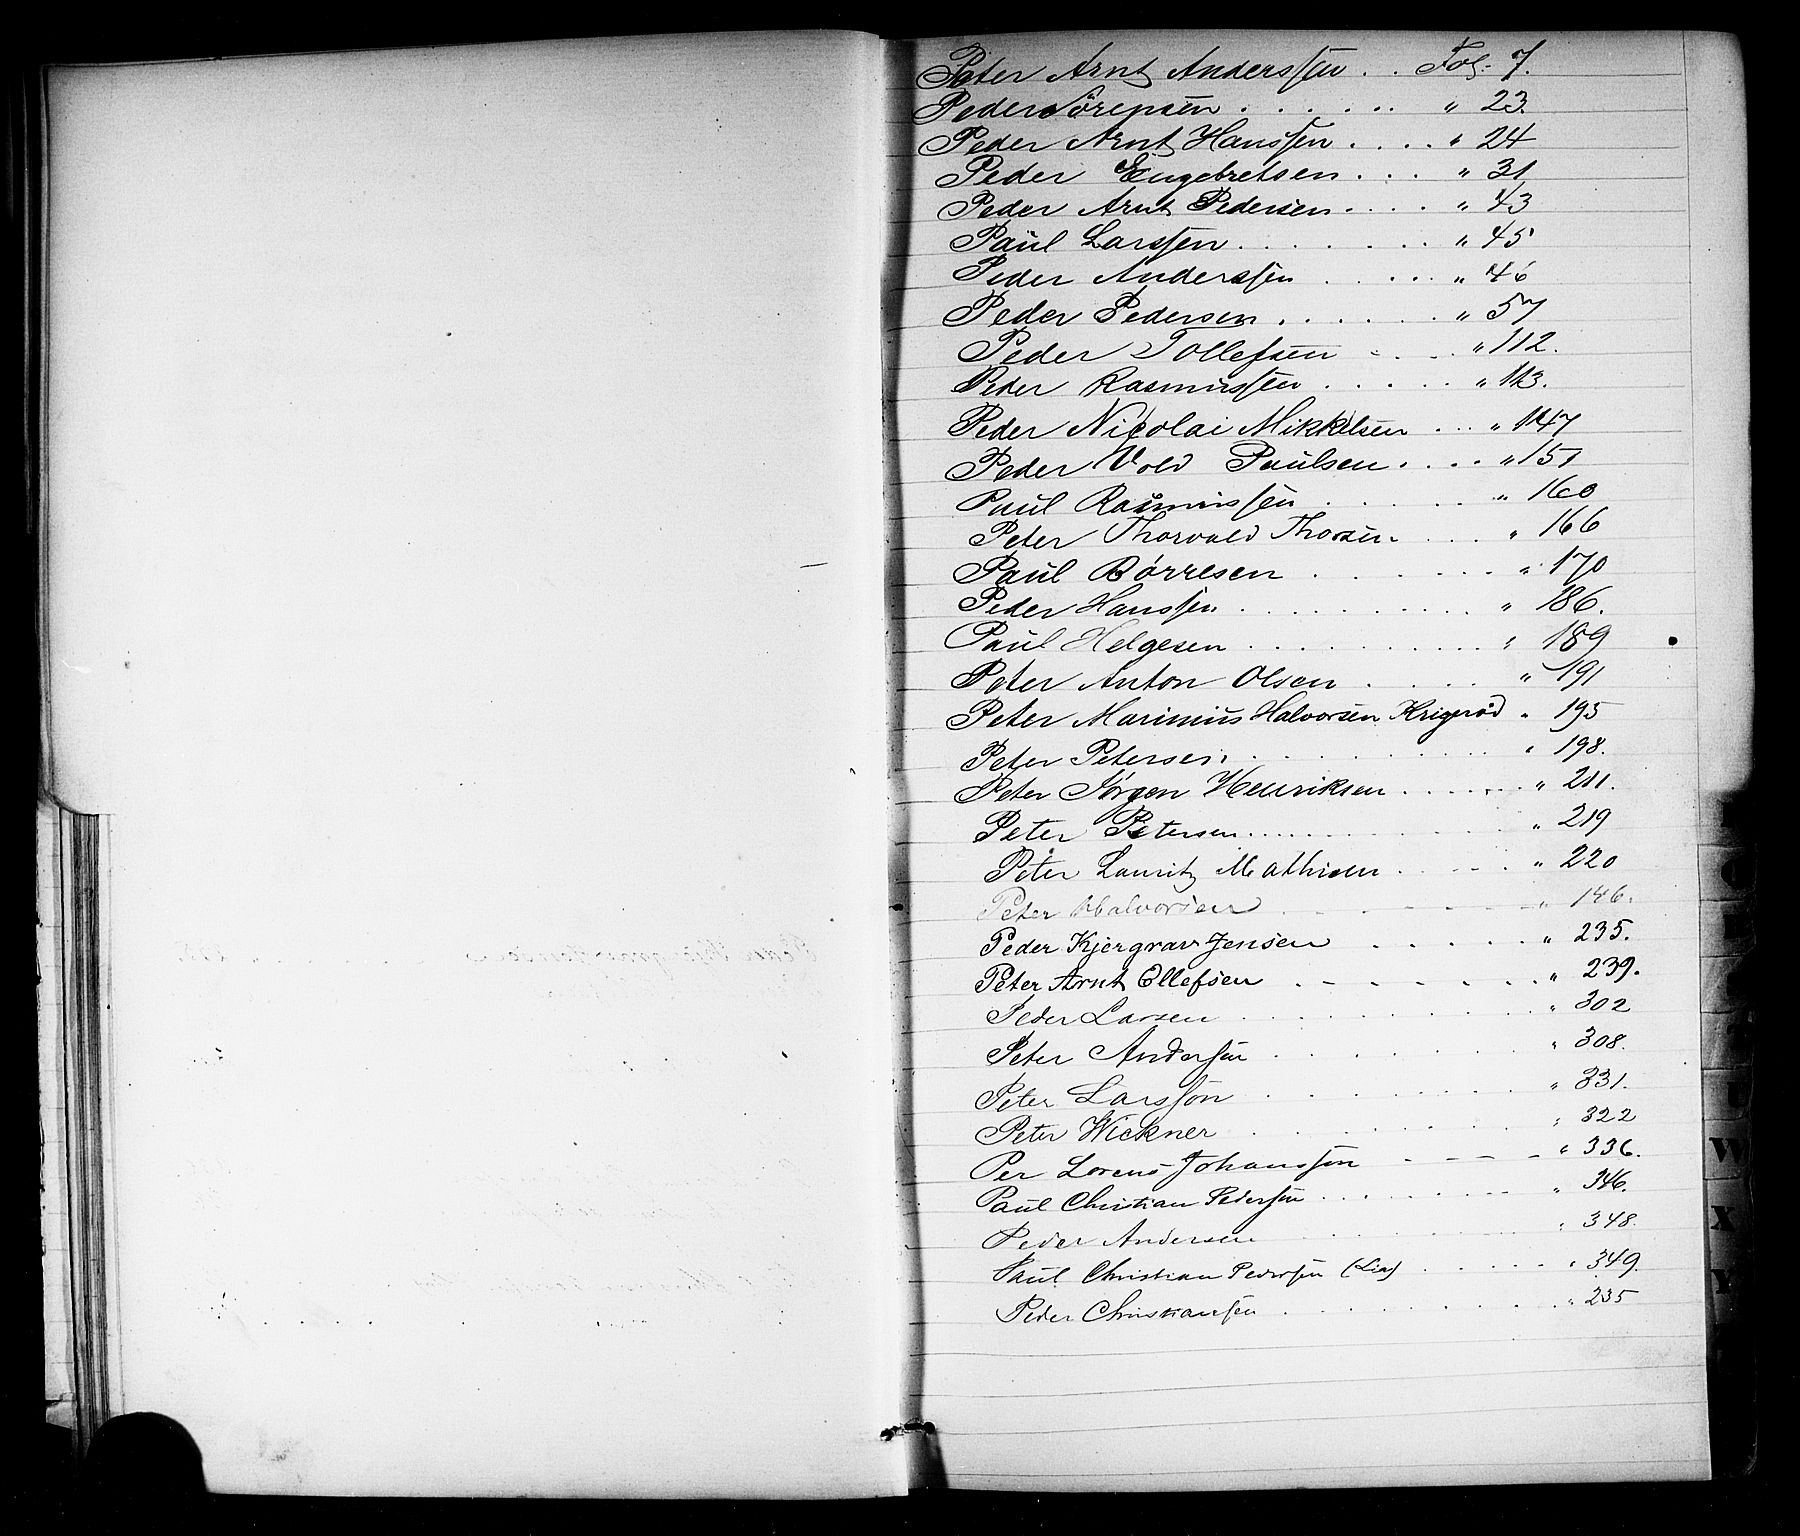 Peter Arnt Anderssen . . Fol. 7.
Peder Sörensen . . . . . . " 23.
Peder Arnt Hanssen . . . . " 24
Peder Engebretsen . . . " 31
Peder Arnt Pedersen . . . . " 43
Paul Larssen . . . . . . . " 45
Peder Anderssen . . . . . " 46
Peder Pedersen . . . . . . " 57
Peder Tollefsen - . . . " 112.
Peder Rasmussen . . . . . " 113.
Peder Nicolai Mikkelsen . . . " 147
Peder Vold Paulsen . . . . " 151
Paul Rasmussen . . . . . " 160
Peter Thorvald Thorsen . . . . " 166
Paul Börresen . . . . . . . " 170
Peder Hanssen . . . . . . . . . . " 186.
Paul Helgesen . . . . . . . . . . " 189
Peter Anton Olsen . . . . . " 191
Peter Marinius Halvorsen Krigeröd " 195
Peter Petersen . . . . . . . . " 198.
Peter Jörgen Henriksen . . . . . . " 211.
Peter Petersen . . . . . . . . . " 219
Peter Lauritz Mathisen . . . . . " 220
Peter Halvorsen . - - - - - " 146.
Peder Kjergrav Jensen . . . . . " 235.
Peter Arnt Ellefsen . - . - . - . " 239.
Peder Larsen . . . . . . . . . . " 302
Peter Andersen . . . . . . . . " 308.
Peter Larsson . . . . . . . . " 331.
Peter Wickner . . . . . . . . . " 322
Per Lorens Johanssen - - - - - " 336.
Paul Christian Pedersen . . . . . . " 346.
Peder Andersen . . . . . . . . " 348.
Paul Christian Pedersen (Lia) . . . . . " 349.
Peder Christiansen . . . . . . . . . " 235
W
X
Y